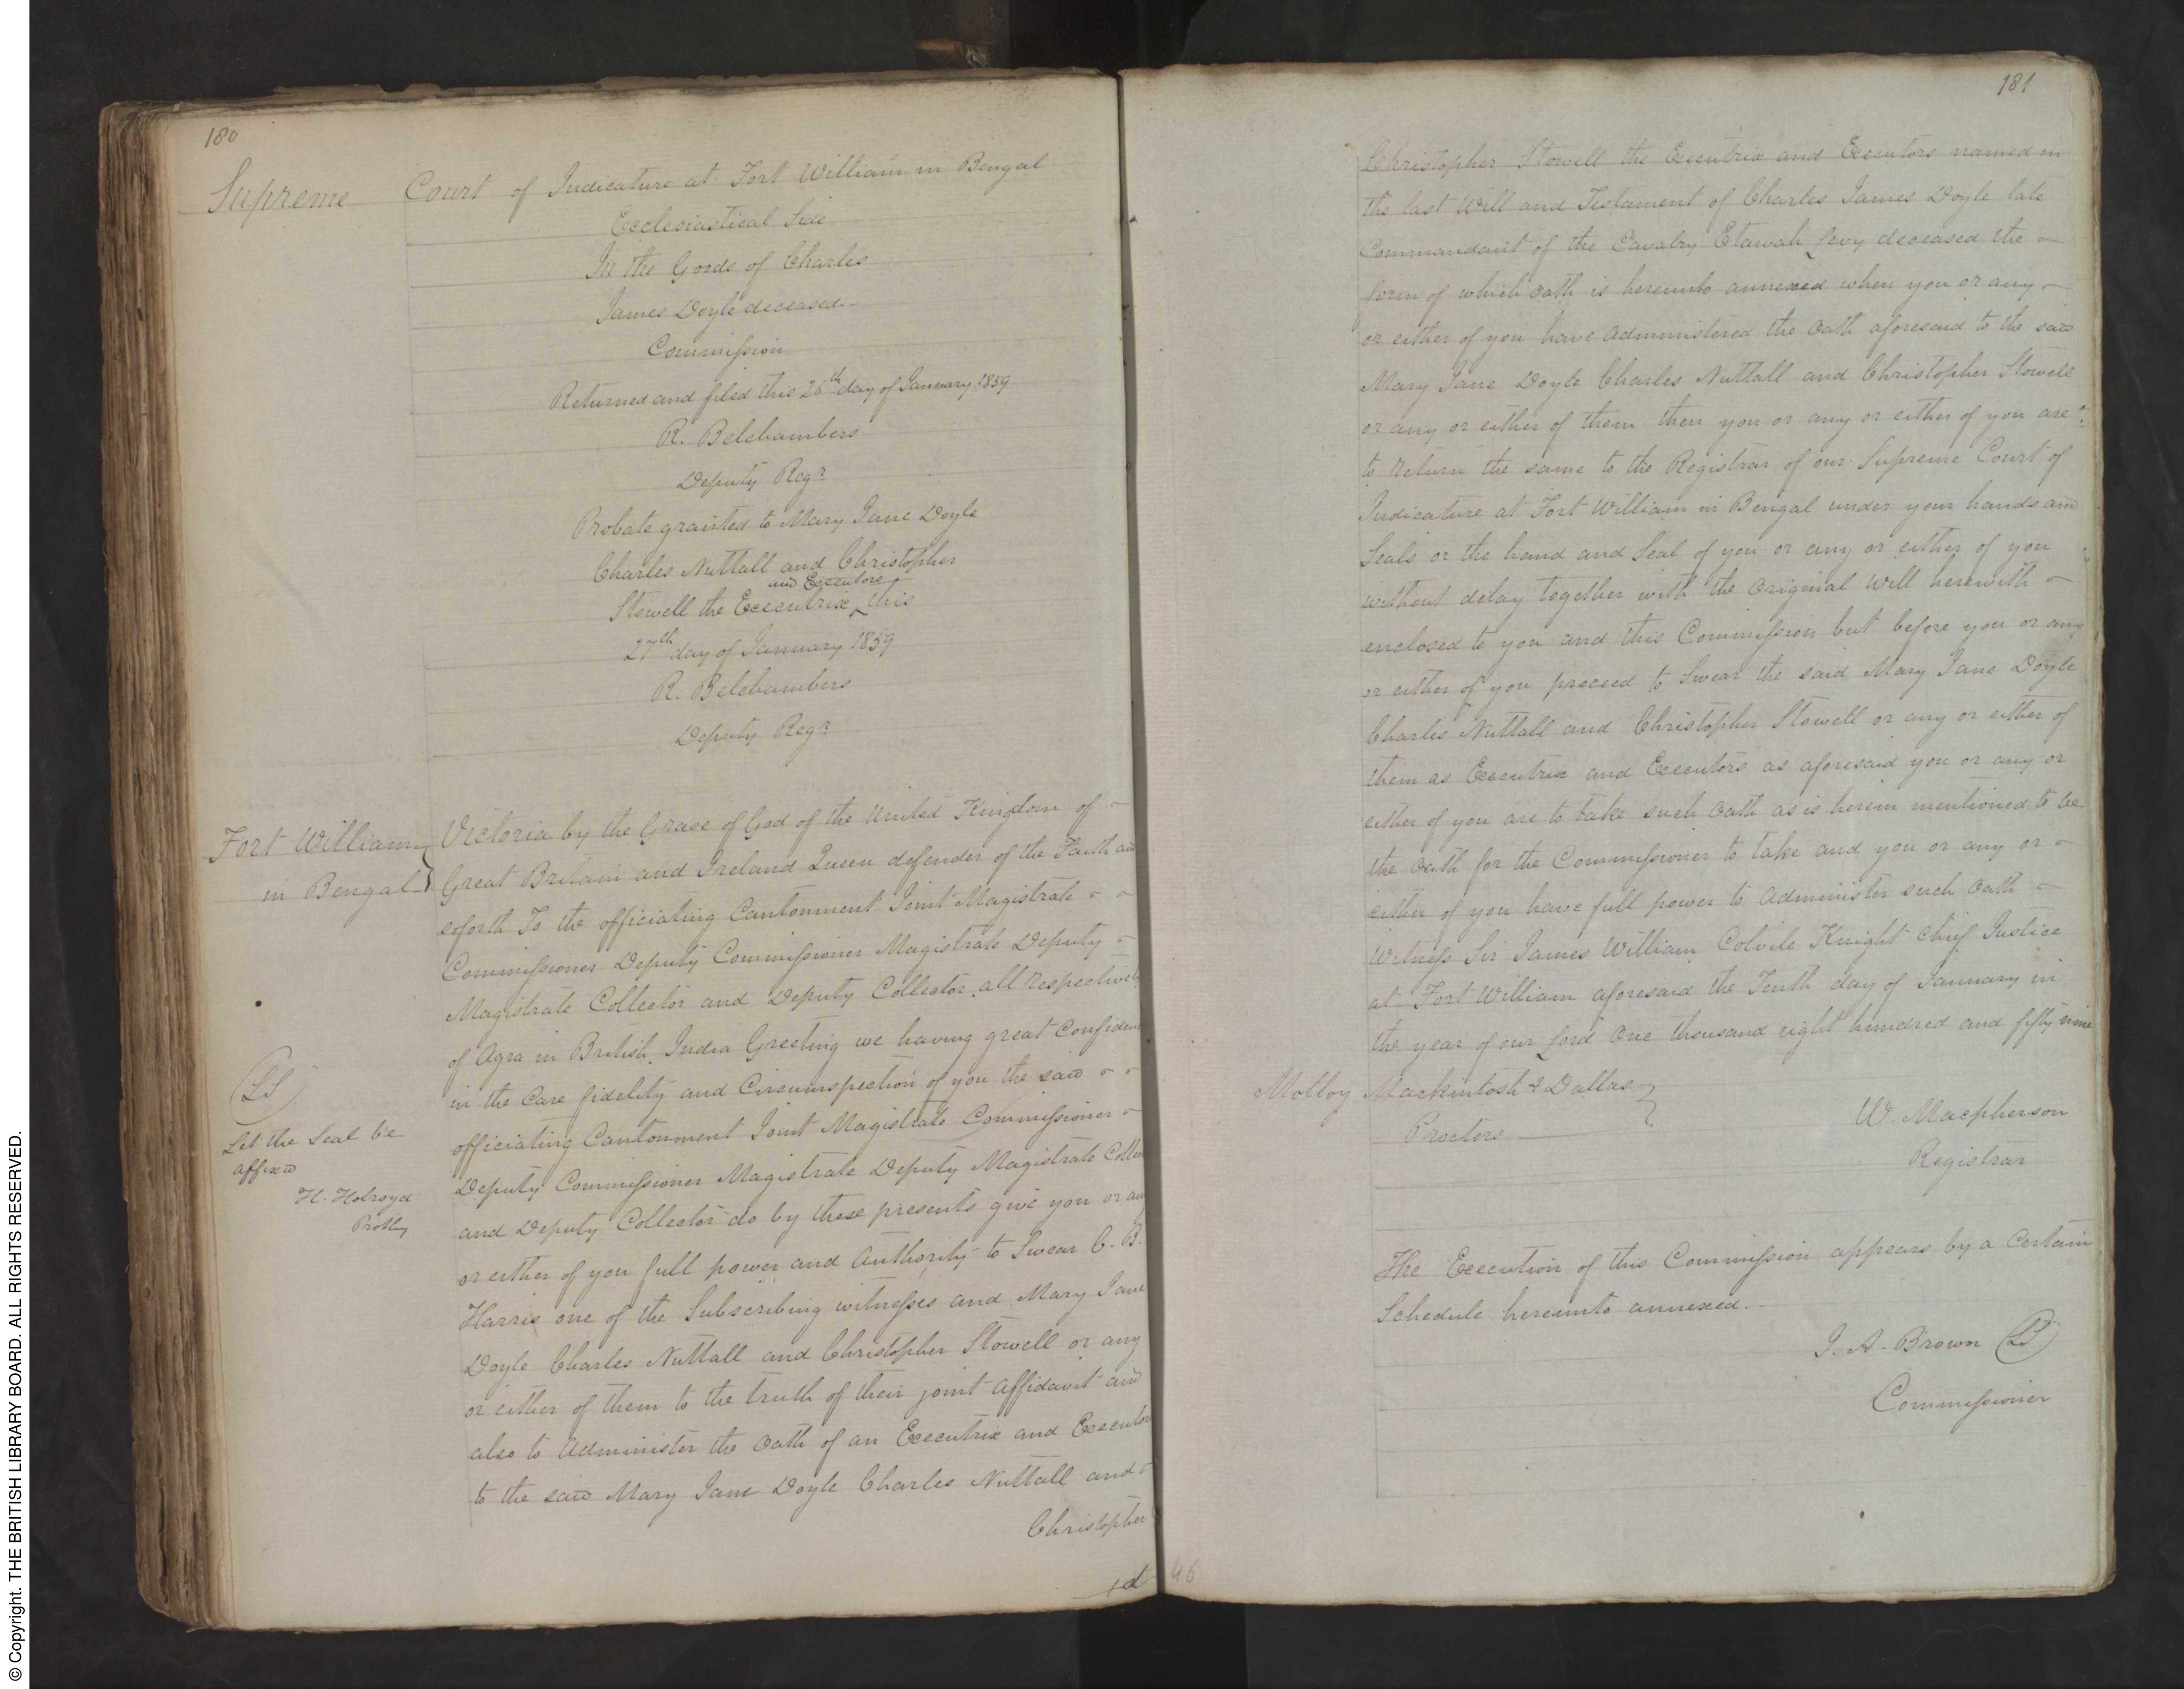 180
Supreme Court of Judicature at Fort William in Bengal
Ecclesiastical Side
In the Goods of Charles
James Doyle deceased -
Commission
Returned and filed this 26th day of January 1859
R. Belchambers
Deputy Regr
Probate granted to Mary Jane Doyle
Charles Nuttall and Christopher
and Executors
Stowell the Executrix ^ this
27th day of January 1859
R. Belchambers
Deputy Regr
Fort William
in Bengal
Victoria by the Grace of God of the United Kingdom of -
Great Britain and Ireland Queen defender of the Faith and
soforth To the officiating Cantonment Joint Magistrate - -
Commissioner Deputy Commissioner Magistrate Deputy -
Magistrate Collector and Deputy Collector all respectively
of Agra in British India Greeting we having great Confiden
in the Care fidelity and Circumspection of you the said - -
officiating Cantonment Joint Magistrate Commissioner -
Deputy Commissioner Magistrate Deputy Magistrate Collec
and Deputy Collector do by these presents give you or any
or either of you full power and Authority to Swear C. B.
Harris one of the Subscribing witnesses and Mary Jane
Doyle Charles Nuttall and Christopher Stowell or any
or either of them to the truth of their joint Affidavit and
also to Administer the Oath of an Executrix and Executors
to the said Mary Jane Doyle Charles Nuttall and -
Christopher
LS
Let the Seal be
affixed
H. Holroyd
Prothy
181
Christopher Stowell the Executrix and Executors named in
the last Will and Testament of Charles James Doyle late
Commandant of the Cavalry Etawah Levy deceased the -
form of which Oath is hereunto annexed when you or any -
or either of you have Administered the Oath aforesaid to the said
Mary Jane Doyle Charles Nuttall and Christopher Stowell
or any or either of them then you or any or either of you are -
to return the same to the Registrar of our Supreme Court of
Judicature at Fort William in Bengal under your hands and
Seals or the hand and Seal of you or any or either of you
without delay together with the Original Will herewith -
enclosed to you and this Commission but before you or any
or either of you proceed to Swear the said Mary Jane Doyle
Charles Nuttall and Christopher Stowell or any or either of
them as Executrix and Executors as aforesaid you or any or
either of you are to take such Oath as is herein mentioned to be
the Oath for the Commissioner to take and you or any or -
either of you have full power to Administer such Oath -
Witness Sir James William Colvile Knight Chief Justice
at Fort William aforesaid the Tenth day of January in
the year of our Lord One thousand eight hundred and fifty nine
Molloy Mackintosh & Dallas
Proctors
W. Macpherson
Registrar
The Execution of this Commission appears by a Certain
Schedule hereunto annexed. -
J. A. Brown LS
Commissioner
46
© Copyright. THE BRITISH LIBRARY BOARD. ALL RIGHTS RESERVED.